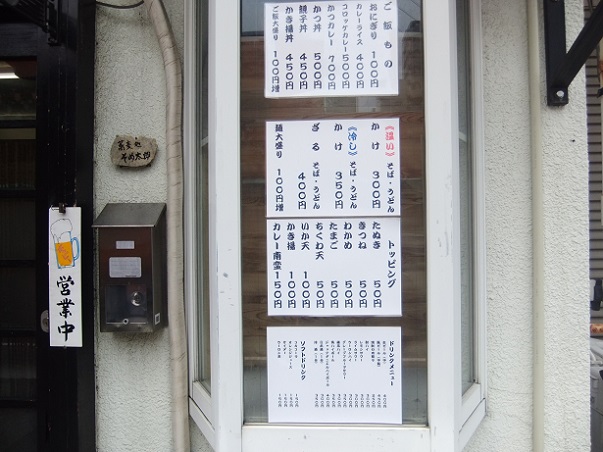 ご飯もの
おにぎり 100円
カレーライス 400円
コロッケカレー 500円
かつカレー 700円
かつ丼 500円
親子丼 450円
かき揚丼 450円
ご飯大盛り 100円増
《温い》
かけ そば・うどん 300円
《冷し》
かけ そば・うどん 350円
ざる そば・うどん 400円
麺大盛り 100円増
トッピング
たぬき 50円
きつね 50円
わかめ 50円
たまご 50円
ちくわ天 50円
いか天 100円
かき揚 100円
カレー南蛮 150円
ドリンクメニュー
ソフトドリンク
蕎麦処
そめ太郎
営業中